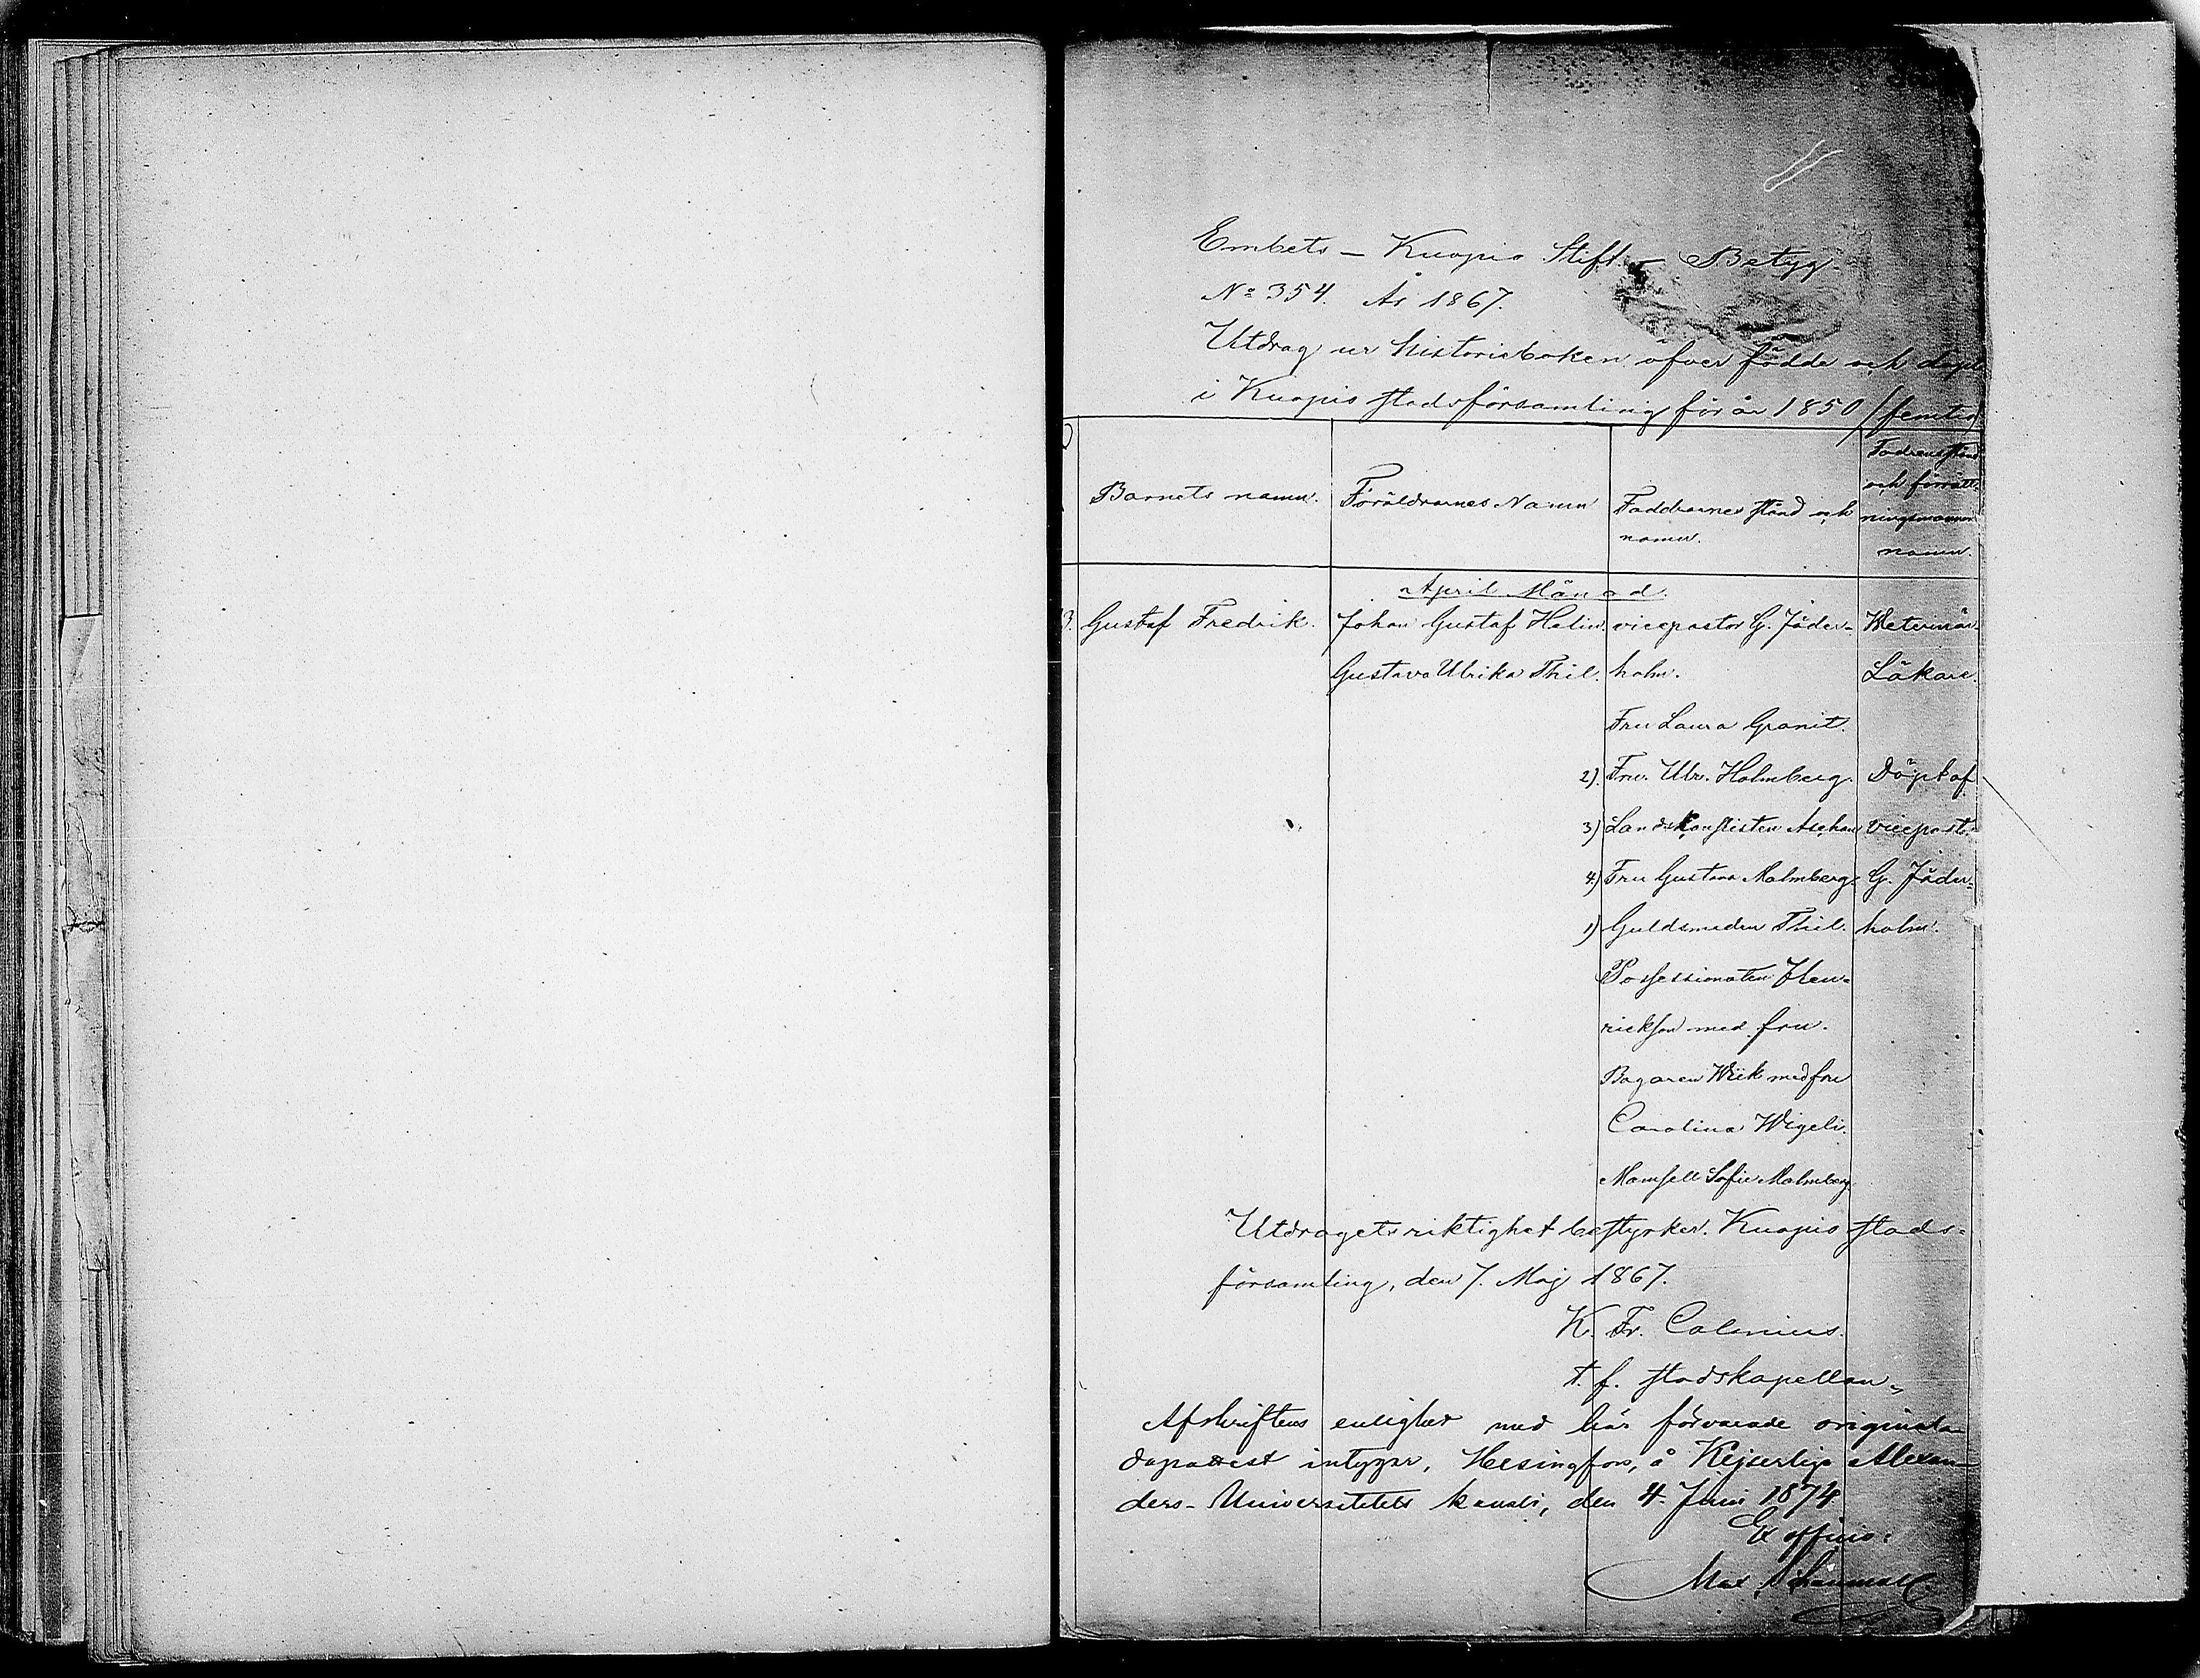 Embets – Kuopio Stift – Betyg.
No 354. År 1867.
Utdrag ur historieboken öfver födde och döpte
i Kuopio stadsförsamling för år 1850 (femtio)
Barnets namn.
Föräldrarnes Namn
Faddrarnes stånd och
namn.
Fadrens stånd
och förrätt-
ningsmannens
namn.
April Månad.
3. Gustaf Fredrik.
Johan Gustaf Halin.
Gustava Ulrika Thil.
vicepastor G. Jäder-
holm.
Fru Laura Granit.
2). Fru. Ulr. Holmberg.
3) Landskonstisten Aschan
4) Fru Gustava Malmberg.
1) Guldsmeden Thil.
Possessionaten Hen-
rickson med fru.
Bagaren Wiik med fru
Carolina Wigeli.
Mamsell Sofie Malmberg
Weterinär-
Läkare.
Döpt af
vicepast.
G. Jäder-
holm.
Utdragets riktighet bestyrker. Kuopio stads-
församling, den 7. Maj 1867.
K. Fr. Calonius.
t. f. stadskapellan.
Afskriftens enlighet med här förvarade original
dopattest intygar, Helsingfors, å Kejserliga Alexan-
ders-Universitetets kansli, den 4. Juni 1874
Ex officio:
Max Schauman